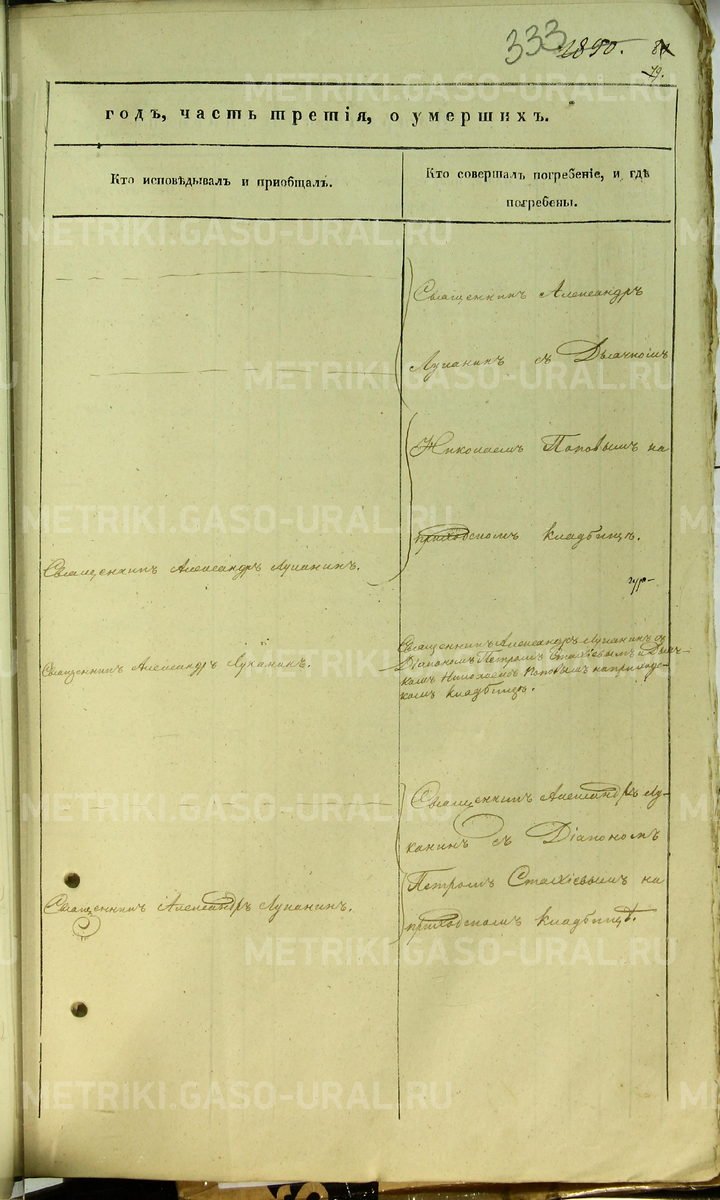 333
1890.
79.
годъ, часть третія, о умершихъ.
Кто исповѣдывалъ и пріобщалъ.
Кто совершалъ погребеніе, и гдѣ
погребены.
Священникъ Александръ
Луканинъ съ Дьячкомъ
Николаемъ Поповымъ на
приходскомъ кладбищѣ.
Священникъ Александръ Луканинъ.
Священникъ Александръ Луканинъ.
Священникъ Александръ Луканинъ съ
Діакономъ Петромъ Стахіевымъ и Дьяч-
комъ Николаемъ Поповымъ на приход-
скомъ кладбищѣ.
Священникъ Александръ Лу-
канинъ съ Діакономъ
Петромъ Стахіевымъ на
приходскомъ кладбищѣ.
Священникъ Александръ Луканинъ.
METRIKI.GASO-URAL.RU